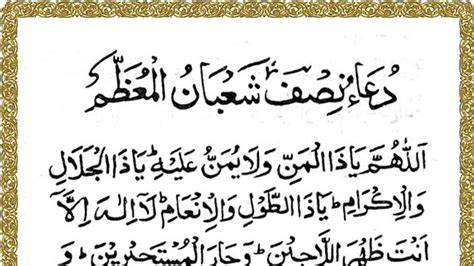 دُعَاءُ نِصْفِ شَعْبَانُ الْمُعَظَّمْ
اَللّٰهُمَّ يَا ذَا الْمَنِّ وَلَا يُمَنُّ عَلَيْهِ ؕ يَا ذَا الْجَلَالِ
وَالْاِكْرَامِ ؕ يَا ذَا الطَّوْلِ وَالْاِنْعَامِ ؕ لَآ اِلٰهَ اِلَّآ
اَنْتَ ظَهْرُ اللَّاجِئِيْنَ ؕ وَجَارُ الْمُسْتَجِيْرِيْنَ ؕ وَ